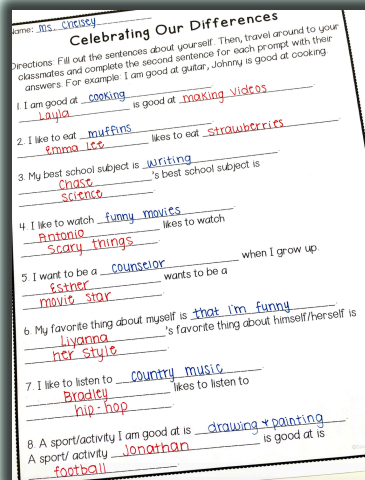 Name: Ms. Chelsey
Celebrating Our Differences
Directions: Fill out the sentences about yourself. Then, travel around to your
classmates and complete the second sentence for each prompt with their
answers. For example: I am good at guitar, Johnny is good at cooking.
1. I am good at cooking
Layla is good at making videos.
2. I like to eat muffins.
Emma Lee likes to eat strawberries.
3. My best school subject is writing.
Chase 's best school subject is
science.
4. I like to watch funny movies.
Antonio likes to watch
scary things.
5. I want to be a counselor when I grow up.
Esther wants to be a
movie star.
6. My favorite thing about myself is that I'm funny.
Liyanna 's favorite thing about himself/herself is
her style.
7. I like to listen to country music.
Bradley likes to listen to
hip-hop.
8. A sport/activity I am good at is drawing + painting.
A sport/ activity Jonathan is good at is
football.